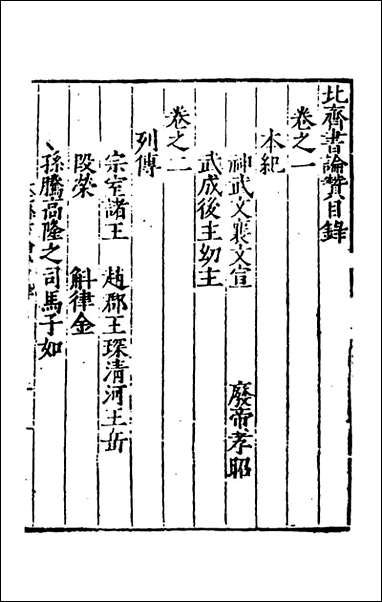 北齊書論贊目錄
卷之一
本紀
神武文襄文宣 廢帝孝昭
武成後主幼主
卷之二
列傳
宗室諸王 趙郡王琛清河王岳
段榮 斛律金
孫騰高隆之司馬子如